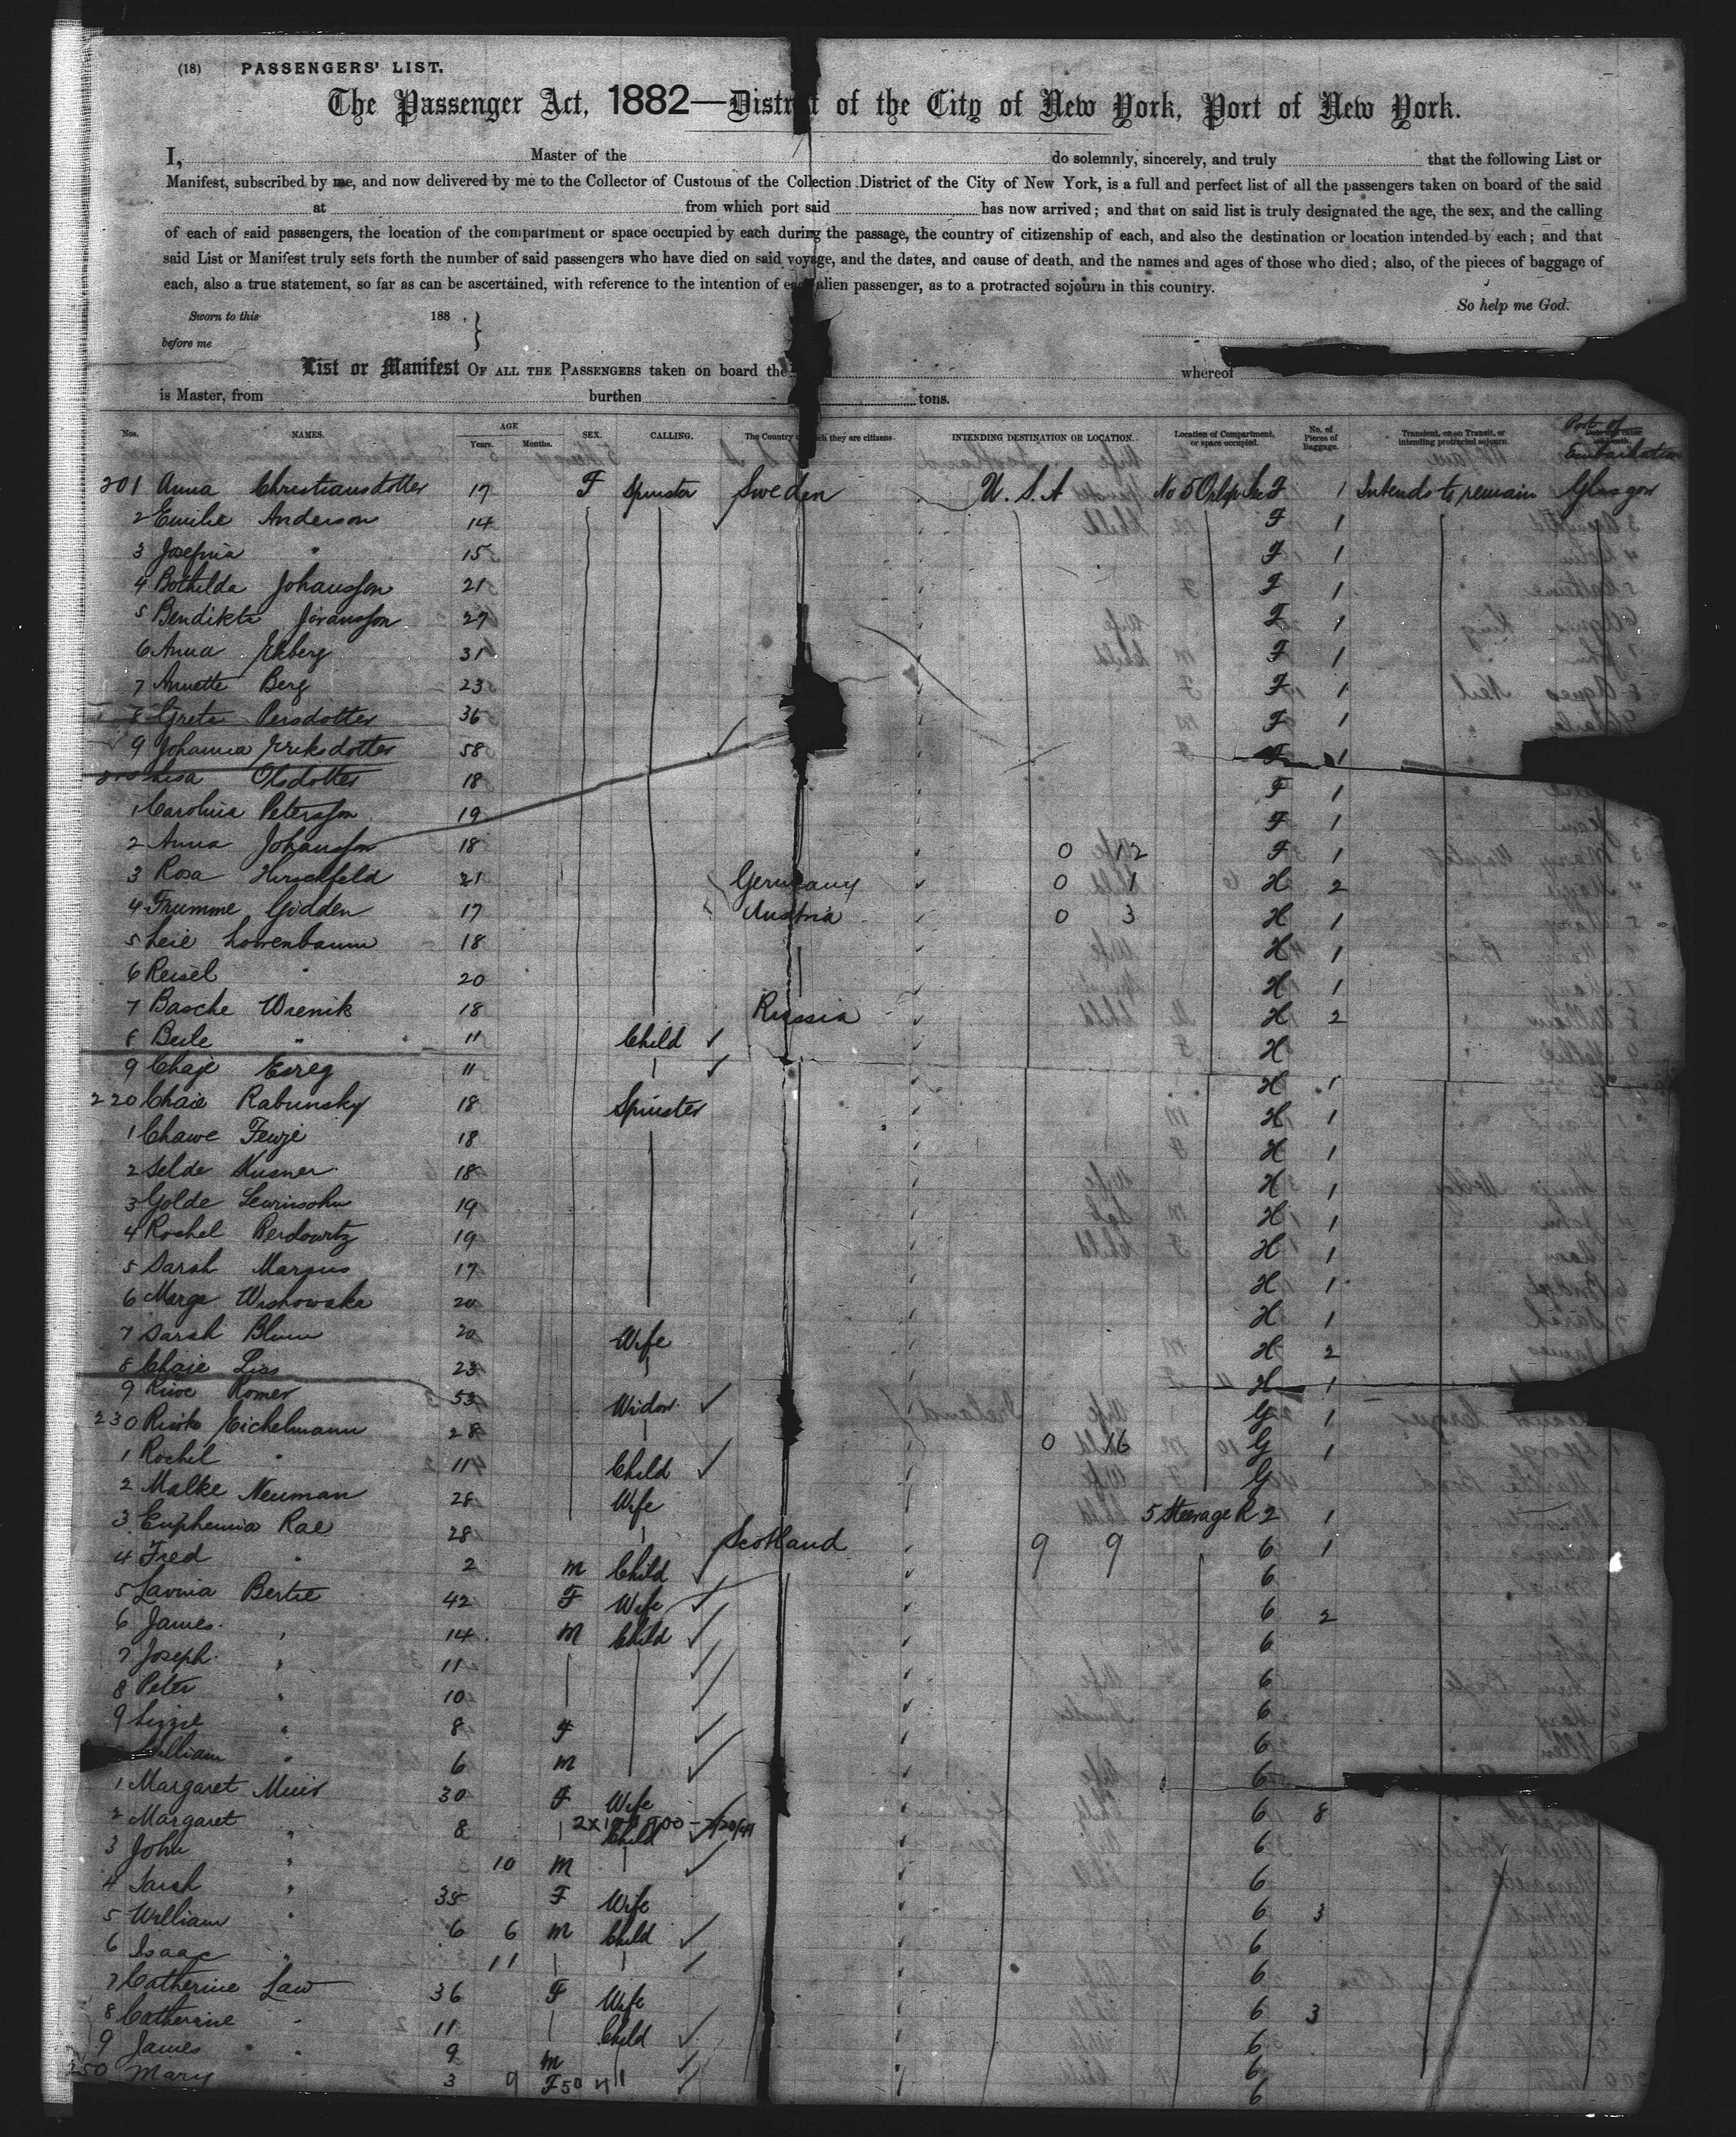 (18) PASSENGERS' LIST.
The Passenger Act, 1882—District of the City of New York, Port of New York.
I, Master of the do solemnly, sincerely, and truly that the following List or
Manifest, subscribed by me, and now delivered by me to the Collector of Customs of the Collection District of the City of New York, is a full and perfect list of all the passengers taken on board of the said
at from which port said has now arrived; and that on said list is truly designated the age, the sex, and the calling
of each of said passengers, the location of the compartment or space occupied by each during the passage, the country of citizenship of each, and also the destination or location intended by each; and that
said List or Manifest truly sets forth the number of said passengers who have died on said voyage, and the dates, and cause of death, and the names and ages of those who died; also, of the pieces of baggage of
each, also a true statement, so far as can be ascertained, with reference to the intention of each alien passenger, as to a protracted sojourn in this country.
So help me God.
Sworn to this 188 .
before me
List or Manifest OF ALL THE PASSENGERS taken on board the whereof
is Master, from burthen tons.
Nos. NAMES. AGE Years. Months. SEX. CALLING. The Country of which they are citizens. INTENDING DESTINATION OR LOCATION. Location of Compartment, or space occupied. No. of Pieces of Baggage. Transient, or on Transit, or intending protracted sojourn. Port of Embarkation
201 Anna Christiansdotter 17 F Spinster Sweden U.S.A No 5 F 1 Intends to remain Glasgow
2 Emilie Anderson 14 F 1
3 Josefina " 15 F 1
4 Bothilda Johansson 21 F 1
5 Bendikta Joransson 27 F 1
6 Anna Ekberg 31 F 1
7 Annette Berg 23 F 1
8 Greta Persdotter 36 F 1
9 Johanna Eriksdotter 58 F 1
Lisa Olsdotter 18 F 1
1 Carolina Petersson 19 F 1
2 Anna Johansson 18 0 12 F 1
3 Rosa Hirschfeld 21 Germany 0 1 H 2
4 Frumme Gidden 17 Austria 0 3 H 1
5 Leie Lowenbaum 18 H 1
6 Reisel " 20 H 1
7 Basche Wrenik 18 Russia H 2
8 Beile " 11 Child H
9 Chaje Esreg 11 H 1
220 Chaie Rabunsky 18 Spinster H 1
1 Chawe 18 H 1
2 Selde Kusner 18 H 1
3 Golde Lewinsohn 19 H 1
4 Rochel Berdowitz 19 H 1
5 Sarah Margus 17 H 1
6 Marge Wishowske 20 H 1
7 Sarah Blum 20 Wife H 2
8 Chaje Liss 23 H 1
9 Riwe Romer 53 Widow G 1
230 Eichelmann 28 0 16 G 1
1 Rochel " 11 Child G
2 Malke Neuman 28 Wife 5 Steerage R 2 1
3 Euphemia Rae 28 Scotland 9 9 6 1
4 Fred " 2 M Child 6
5 Lavinia Bertie 42 F Wife 6 2
6 James " 14 M Child 6
7 Joseph " 11 6
8 Peter " 10 6
9 Lizzie " 8 F 6
William " 6 M 6
1 Margaret Muir 30 F Wife 6 8
2 Margaret " 8 Child 6
3 John " 10 M 6
4 Sarah " 35 F Wife 6 3
5 William " 6 6 M Child 6
6 Isaac " 11 6
7 Catherine Law 36 F Wife 6 3
8 Catherine " 11 Child 6
9 James " 9 M 6
250 Mary 3 9 F 6